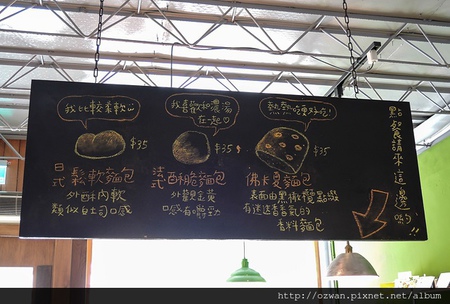 我比較柔軟
$35
日式 鬆軟麵包
外酥內軟
類似白吐司口感
我喜歡和濃湯
在一起
$35
法式 酥脆麵包
外觀呈黃
口感有嚼勁
熱熱的更好吃!
$35
佛卡夏麵包
表面由黑橄欖點綴
有迷迭香香氣的
香料麵包
點餐請來這邊喲!!
http://ozwan.pixnet.net/album